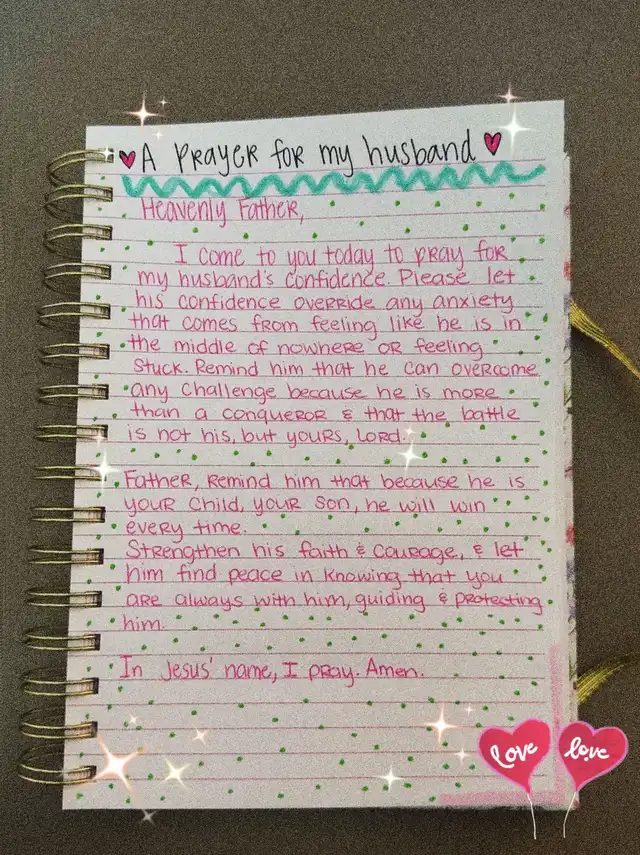 A Prayer for my husband
Heavenly Father,
I come to you today to pray for
my husband's confidence. Please let
his confidence override any anxiety
that comes from feeling like he is in
the middle of nowhere or feeling
stuck. Remind him that he can overcome
any challenge because he is more
than a conqueror & that the battle
is not his, but yours, Lord.
Father, remind him that because he is
your child, your son, he will win
every time.
Strengthen his faith & courage, & let
him find peace in knowing that you
are always with him, guiding & protecting
him.
In Jesus' name, I pray. Amen.
Love love